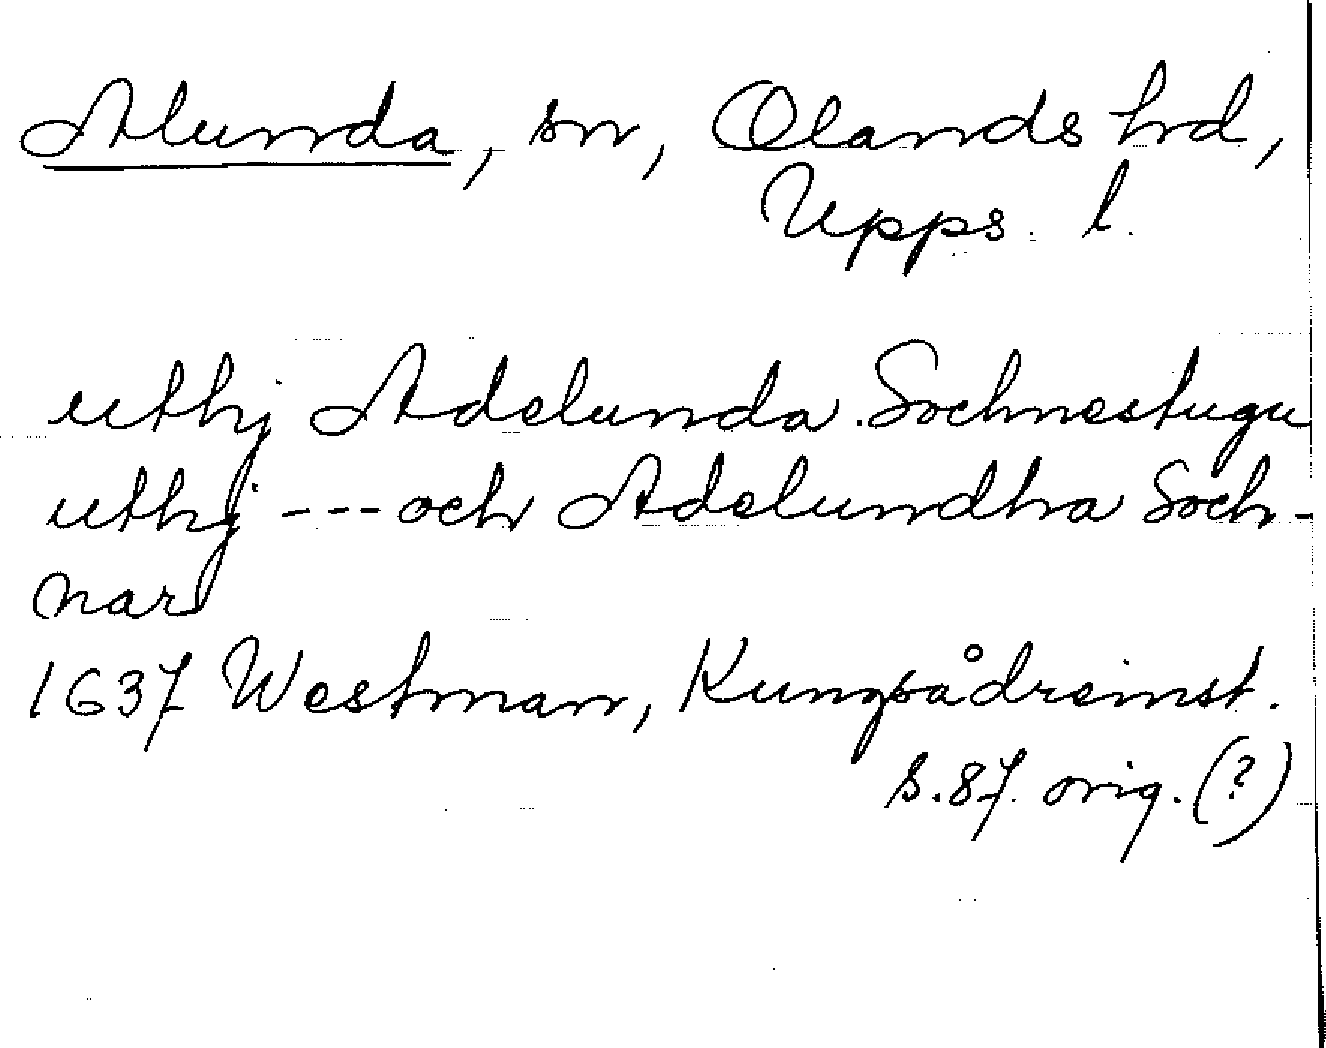 Alunda, sn, Olands hrd,
Upps. l.
uthj Adelunda Sochnestugu
uthj --- och Adelundha Soch-
nar
1637 Westman, Kungsådreinst.
s.87. orig. (?)